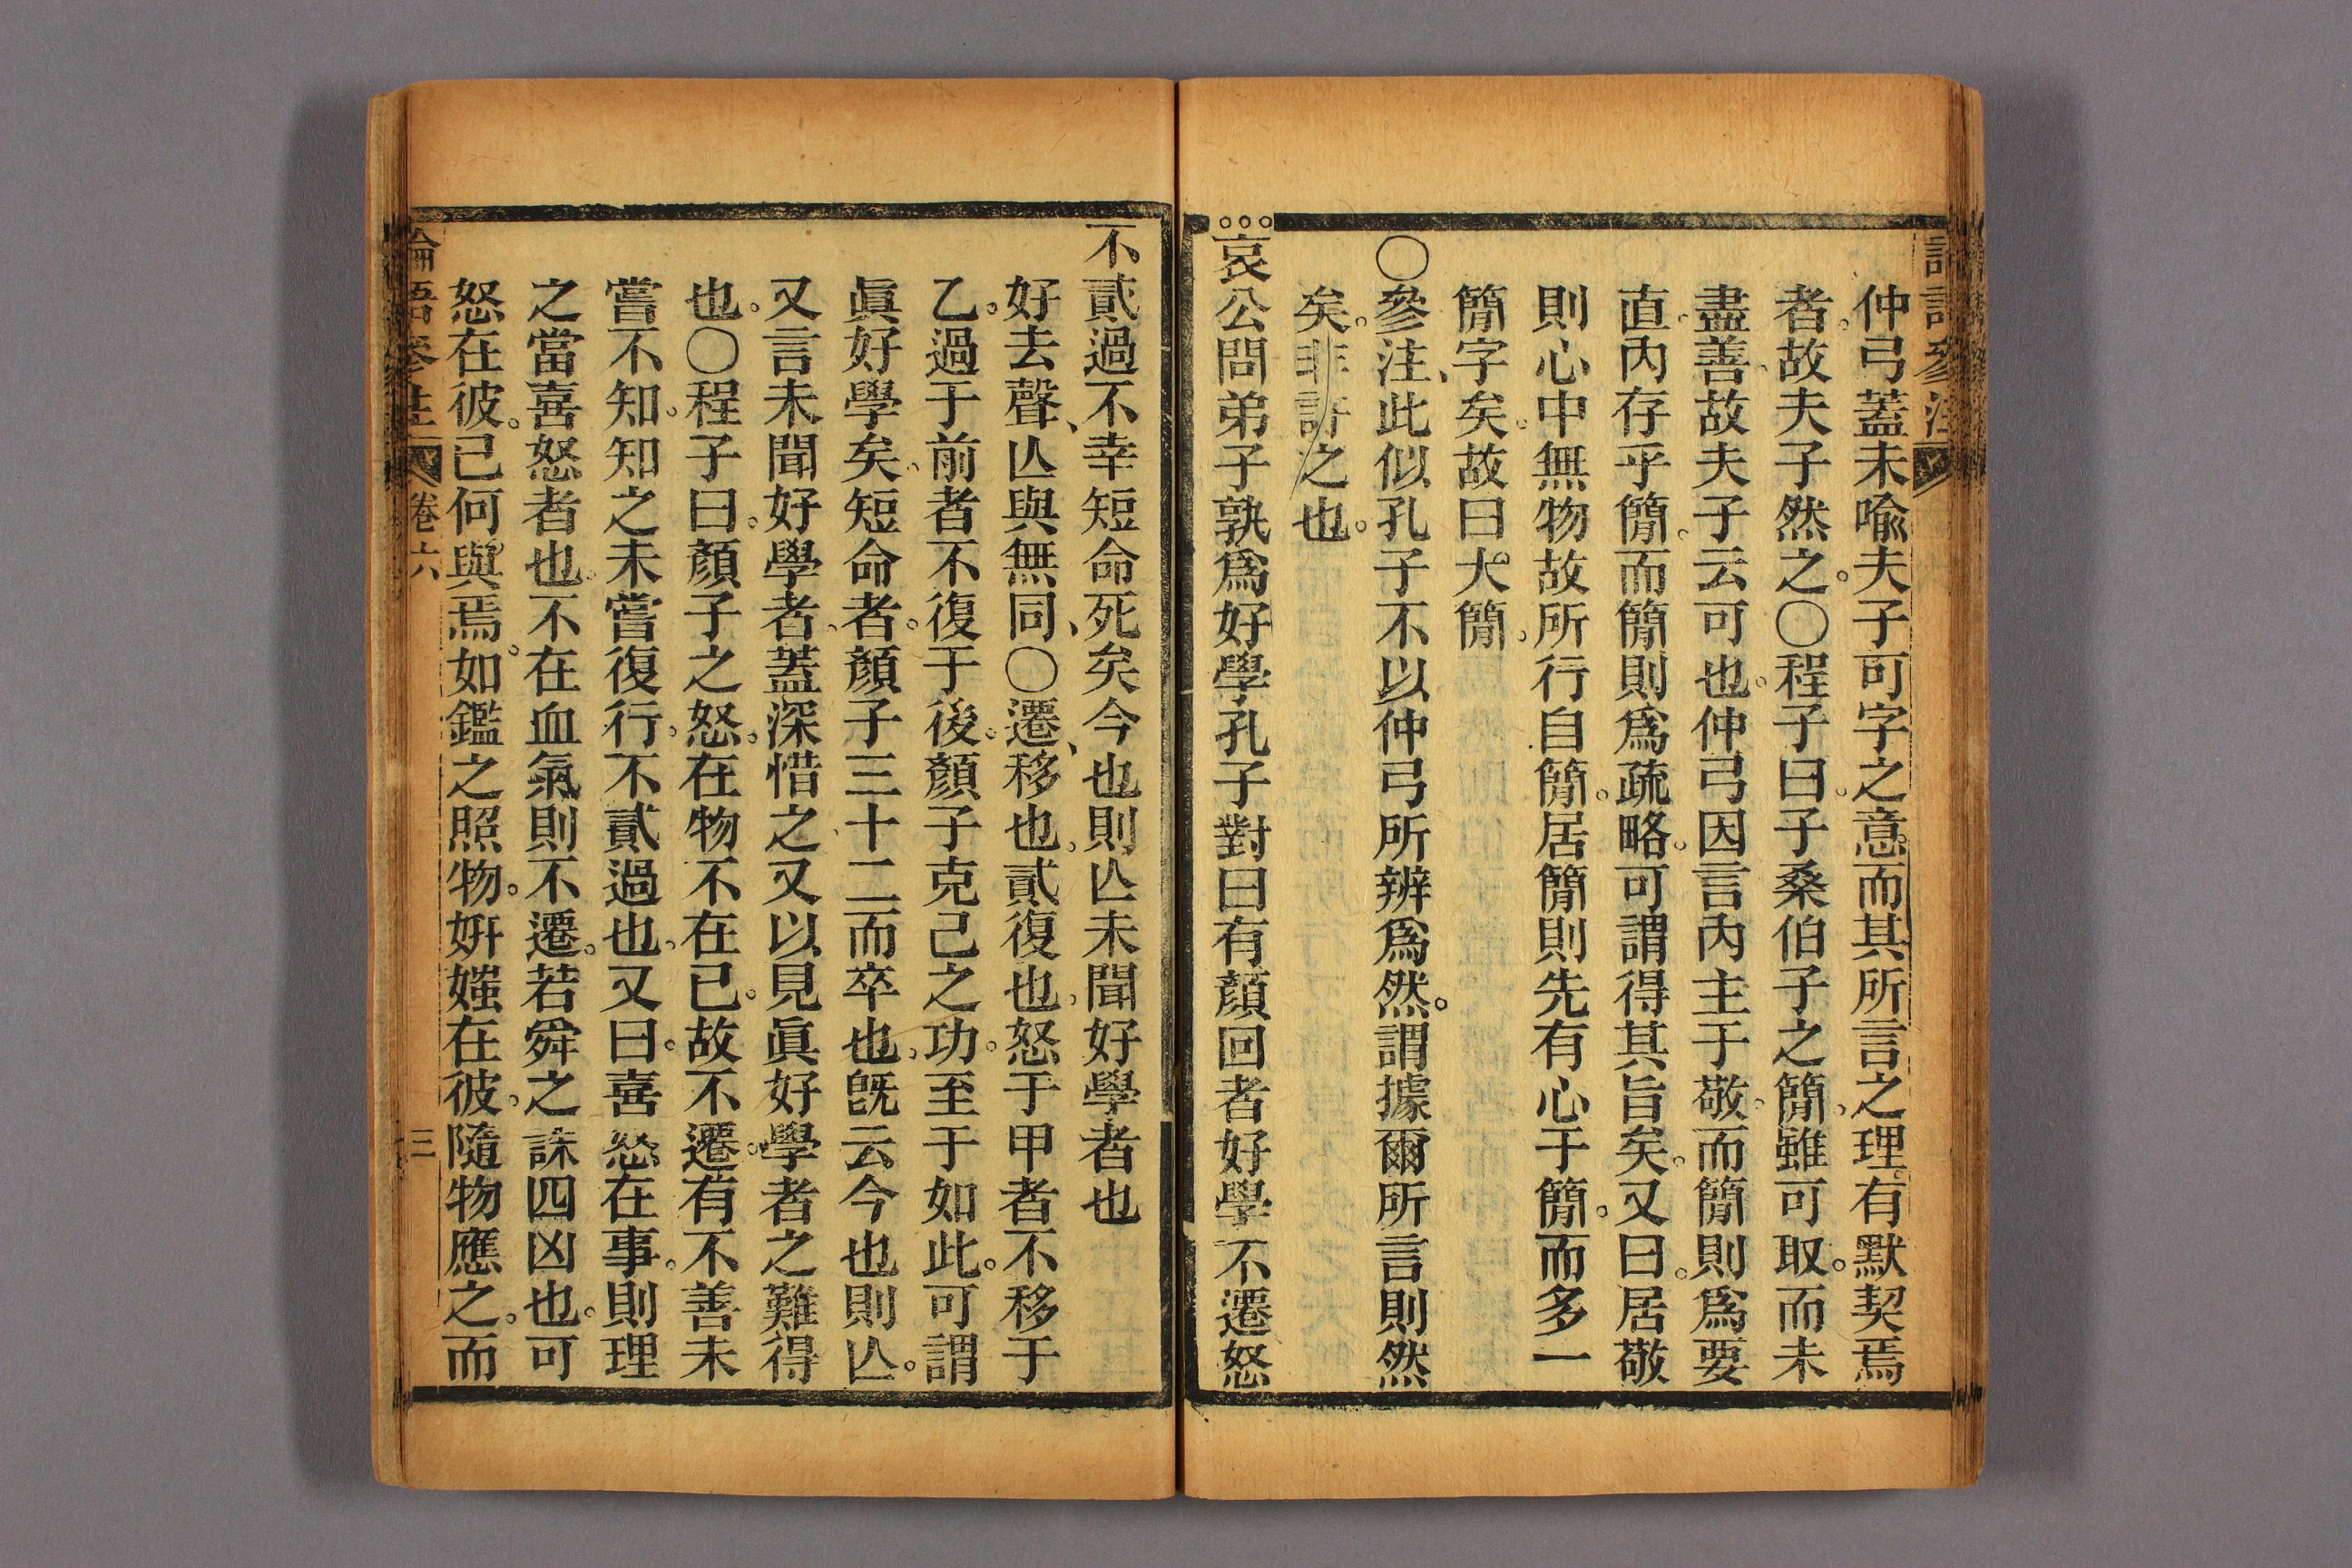 仲弓蓋未喩夫子可字之意而其所言之理有默契焉
者故夫子然之○程子曰子桑伯子之簡雖可取而未
盡善故夫子云可也仲弓因言內主于敬而簡則爲要
直內存乎簡而簡則爲疏略可謂得其旨矣又曰居敬
則心中無物故所行自簡居簡則先有心于簡而多一
簡字矣故曰大簡
○參注此似孔子不以仲弓所辨爲然謂據爾所言則然
矣非許之也
哀公問弟子孰爲好學孔子對曰有顏回者好學不遷怒
不貳過不幸短命死矣今也則亾未聞好學者也
好去聲亾與無同○遷移也貳復也怒于甲者不移于
乙過于前者不復于後顏子克己之功至于如此可謂
眞好學矣短命者顏子三十二而卒也旣云今也則亾
又言未聞好學者蓋深惜之又以見眞好學者之難得
也○程子曰顏子之怒在物不在己故不遷有不善未
嘗不知知之未嘗復行不貳過也又曰喜怒在事則理
之當喜怒者也不在血氣則不遷若舜之誅四凶也可
怒在彼己何與焉如鑑之照物姸媸在彼隨物應之而
論語參注 卷六 三